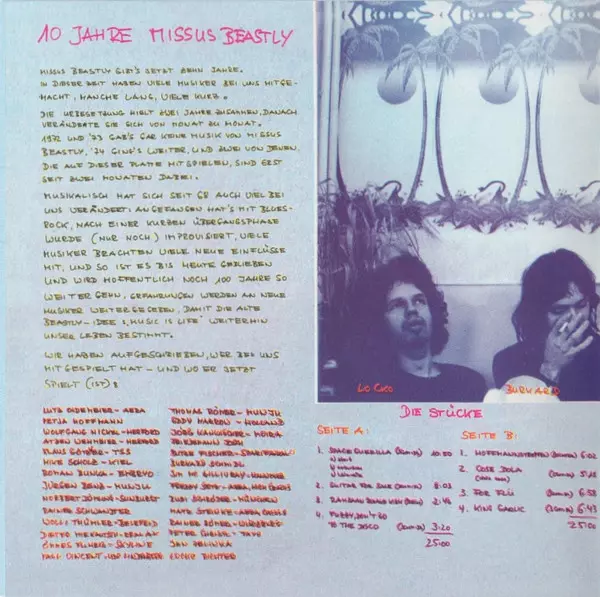 10 JAHRE MISSUS BEASTLY
MISSUS BEASTLY GIBT'S JETZT ZEHN JAHRE.
IN DIESER ZEIT HABEN VIELE MUSIKER BEI UNS MITGE-
MACHT, MANCHE LANG, VIELE KURZ.
DIE URBESETZUNG HIELT ZWEI JAHRE ZUSAMMEN, DANACH
VERÄNDERTE SIE SICH VON MONAT ZU MONAT.
1972 UND '73 GAB'S GAR KEINE MUSIK VON MISSUS
BEASTLY, '74 GING'S WEITER, UND ZWEI VON DENEN,
DIE AUF DIESER PLATTE MITSPIELEN, SIND ERST
SEIT ZWEI MONATEN DABEI.
MUSIKALISCH HAT SICH SEIT 68 AUCH VIEL BEI
UNS VERÄNDERT: ANGEFANGEN HAT'S MIT BLUES-
ROCK, NACH EINER KURZEN ÜBERGANGSPHASE
WURDE (NUR NOCH) IMPROVISIERT, VIELE
MUSIKER BRACHTEN VIELE NEUE EINFLÜSSE
MIT, UND SO IST ES BIS HEUTE GEBLIEBEN
UND WIRD HOFFENTLICH NOCH 100 JAHRE SO
WEITER GEHN, ERFAHRUNGEN WERDEN AN NEUE
MUSIKER WEITERGEGEBEN, DAMIT DIE ALTE
BEASTLY-IDEE "MUSIC IS LIFE" WEITERHIN
UNSER LEBEN BESTIMMT.
WIR HABEN AUFGESCHRIEBEN, WER BEI UNS
MITGESPIELT HAT - UND WO ER JETZT
SPIELT (IST):
LUTZ OLDEMEIER - AERA
PETJA HOFFMANN
WOLFGANG NICKEL - HERFORD
ATZEN WEHMEIER - HERFORD
HANS GÖTZER - TSS
MIKE SCHOLZ - KIEL
ROMAN BUNKA - EMBRYO
JÜRGEN BENZ - MUNJU
NORBERT DÖMLING - SUNBURST
RAINER SCHWANDER
WOLLI THÜMLER - BIELEFELD
DIETER MIEKAUTSCH
HANNES
PAUL VINCENT
THOMAS RÖMER - MUNJU
EDDY MARRON - HOLLAND
JÖRG KANWISCHER - MOIRA
FRIEDEMANN JOSCH
BUTZE FISCHER - SPARIFANKAL
BURKARD SCHMIDL
JIM MC GILLIVRAY
FREDDY SETZ - AERA
MÜNCHEN
RAINER RÖMER
PETER
JAN JELINKA
LOCKO RICHTER
LOCO
BURKARD
DIE STÜCKE
SEITE A:
1. SPACE GUERILLA 10:50
2. GUITAR FOR SALE 8:03
3. RAHSAAN ROLAND KIRK 2:46
4. FUZZY, DON'T GO
TO THE DISCO 3:20
25:00
SEITE B:
1. HOFFMANNSTROPFEN 6:02
2. COSE DOLA 5:16
3. FOR FLÜ 6:58
4. KING GARLIC 6:43
25:00